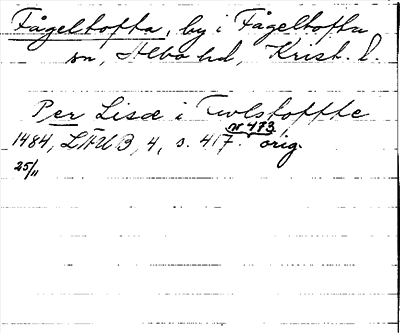 Fågeltofta, by i Fågeltofta
sn, Albo hd, Krist. l.
Per Lisæ i Fwlstoffthe
nr 473,
1484, LÄUB, 4, s. 417. orig.
25/11